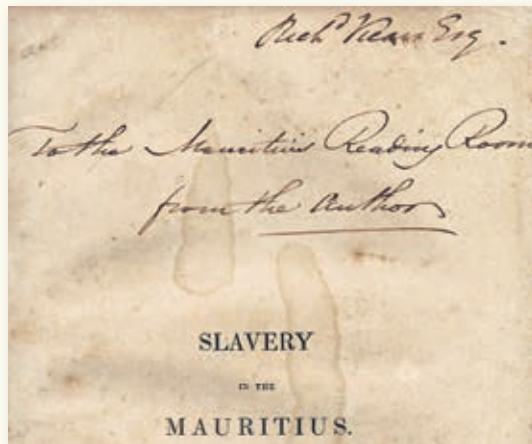 Richd Esq.
To the Mauritius Reading Room
from the Author
SLAVERY
IN THE
MAURITIUS.